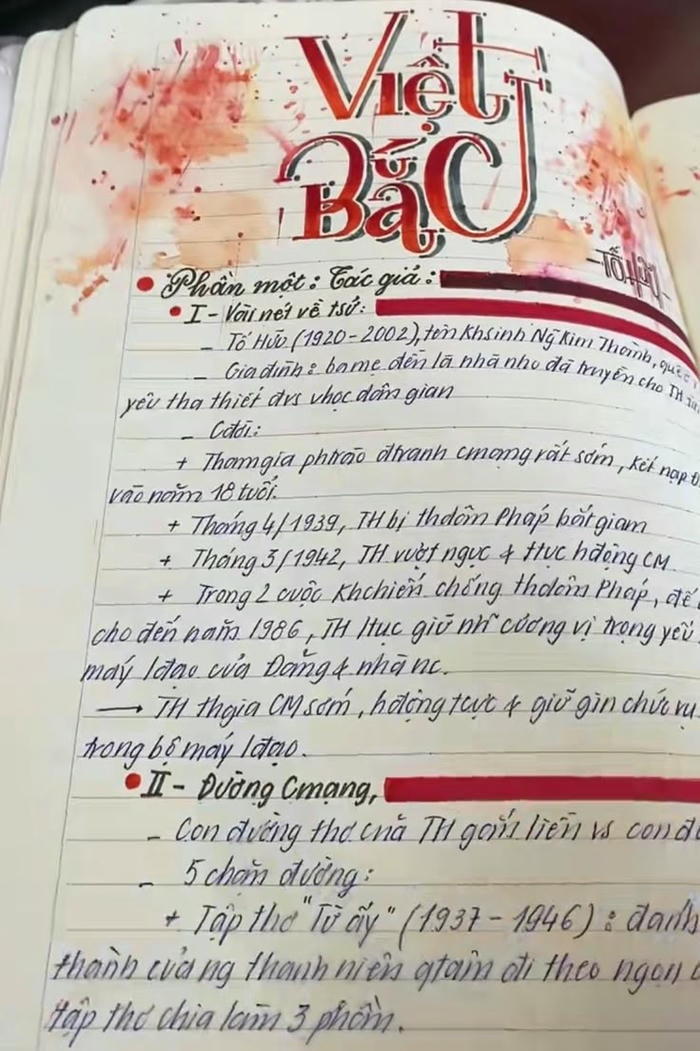 Việt
Bắc
-Tố Hữu-
Phần một: Tác giả:
I - Vài nét về tsử:
- Tố Hữu (1920-2002), tên khsinh Ng Kim Thành, quê
- Gia đình: ba mẹ đến là nhà nho đã truyền cho TH
yêu tha thiết đvs vhọc dân gian
- Cđời:
+ Tham gia phtrào đtranh cmạng rất sớm, kết nạp
vào năm 18 tuổi.
+ Tháng 4/1939, TH bị thdân Pháp bắt giam
+ Tháng 3/1942, TH vượt ngục & ttục hđộng CM
+ Trong 2 cuộc khchiến chống thdân Pháp, đế
cho đến năm 1986, TH ttục giữ nh~ cương vị trọng yếu
máy lđạo của Đảng & nhà nc.
→ TH thgia CM sớm, hđộng tcực & giữ gìn chức vụ
trong bộ máy lđạo.
II - Đường Cmạng,
- Con đường thơ của TH gắn liền vs con
- 5 chặn đường:
+ Tập thơ "Từ ấy" (1937-1946): đánh
thành của ng thanh niên qtâm đi theo ngọn
tập thơ chia làm 3 phần.